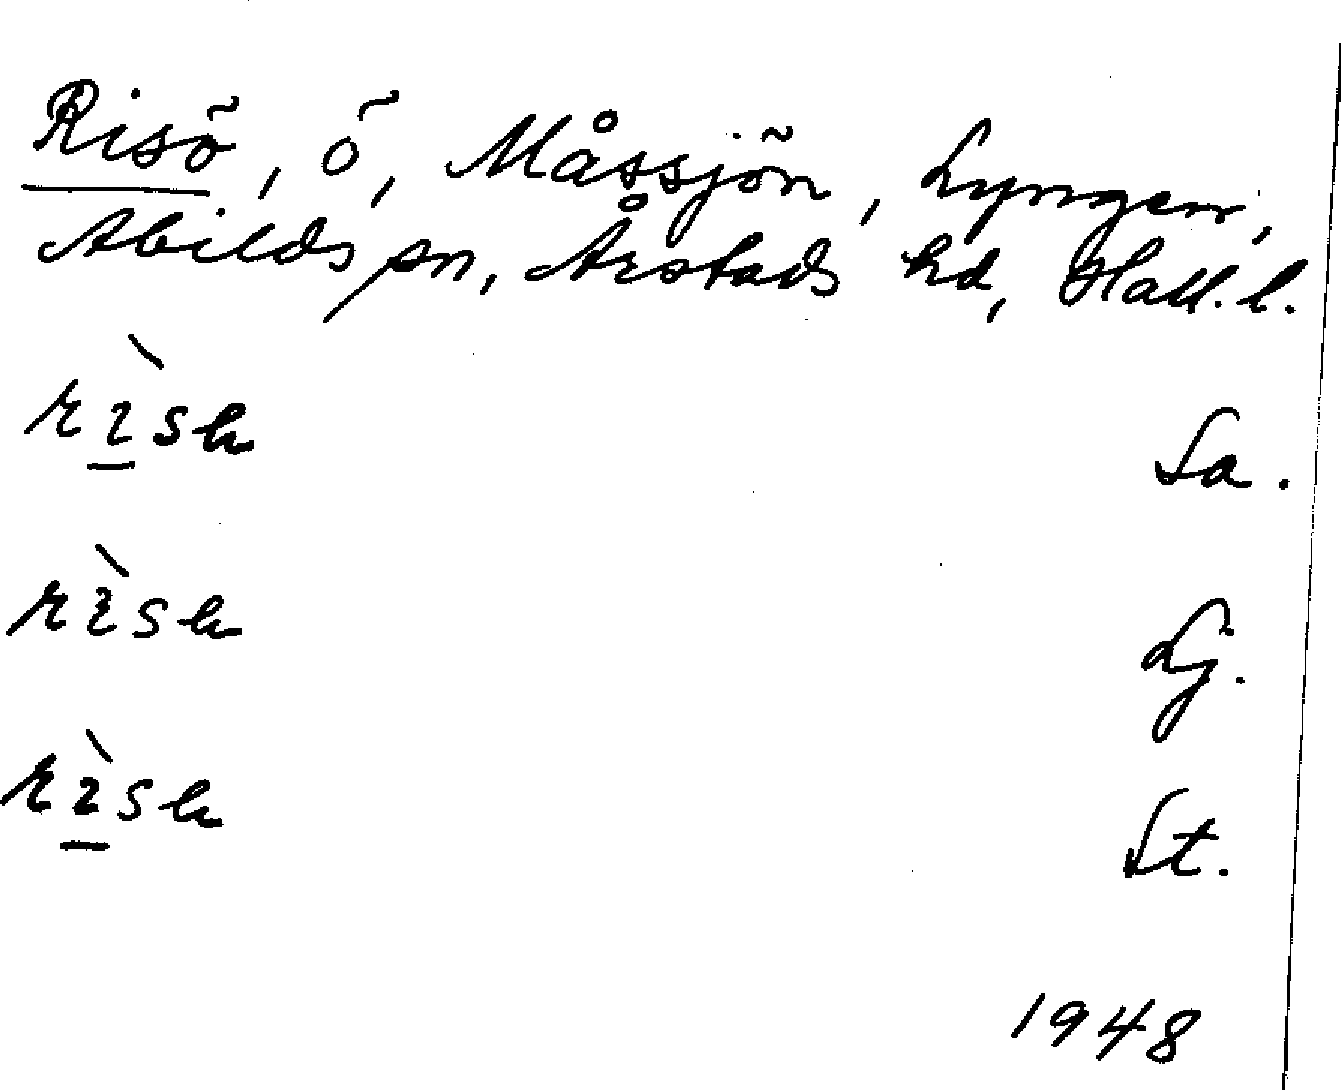 Risö, ö, Måssjön, Lyngen,
Abilds sn, Årstads hd, Hall. l.
Sa.
Lj.
St.
1948